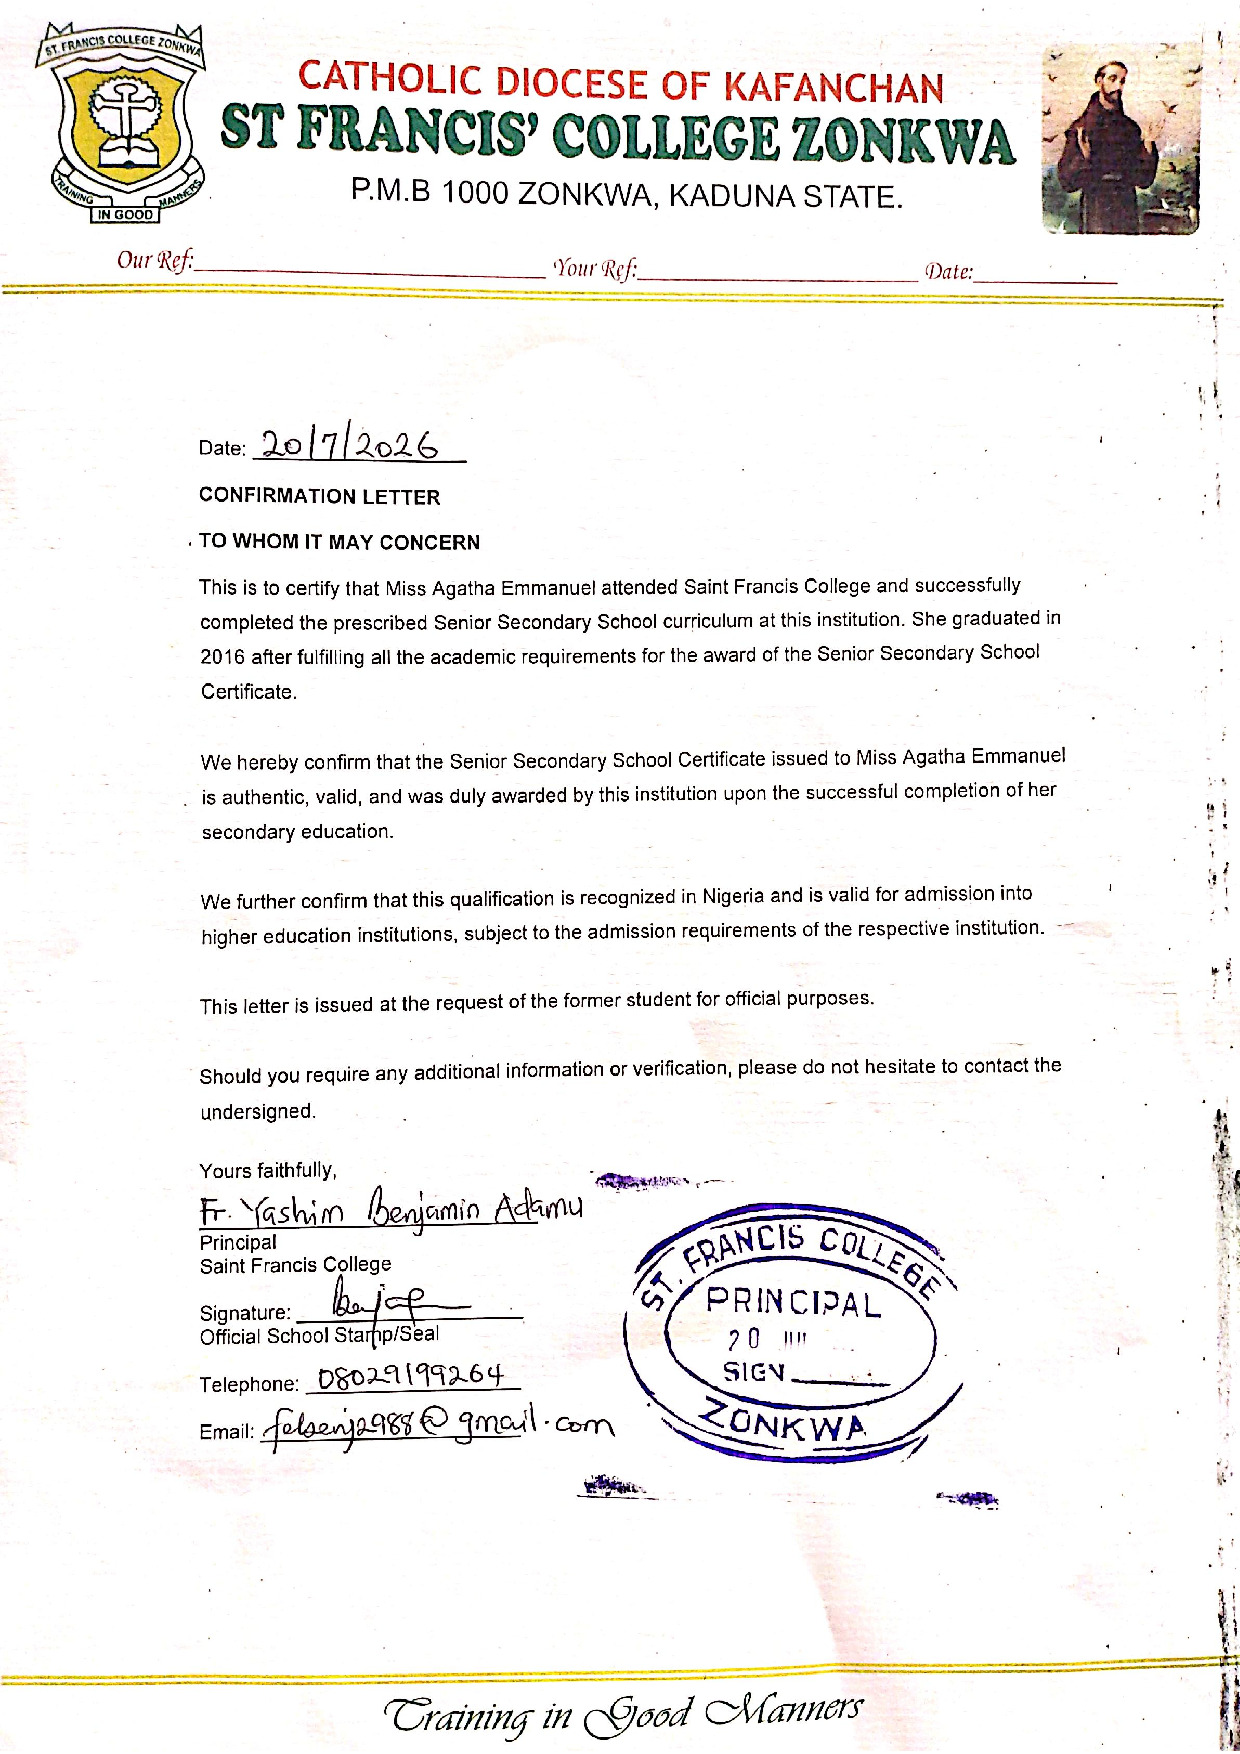 ST. FRANCIS COLLEGE ZONKWA
TRAINING
IN GOOD
MANNERS
CATHOLIC DIOCESE OF KAFANCHAN
ST FRANCIS' COLLEGE ZONKWA
P.M.B 1000 ZONKWA, KADUNA STATE.
Our Ref: Your Ref: Date:
Date: 20/7/2026
CONFIRMATION LETTER
TO WHOM IT MAY CONCERN
This is to certify that Miss Agatha Emmanuel attended Saint Francis College and successfully
completed the prescribed Senior Secondary School curriculum at this institution. She graduated in
2016 after fulfilling all the academic requirements for the award of the Senior Secondary School
Certificate.
We hereby confirm that the Senior Secondary School Certificate issued to Miss Agatha Emmanuel
is authentic, valid, and was duly awarded by this institution upon the successful completion of her
secondary education.
We further confirm that this qualification is recognized in Nigeria and is valid for admission into
higher education institutions, subject to the admission requirements of the respective institution.
This letter is issued at the request of the former student for official purposes.
Should you require any additional information or verification, please do not hesitate to contact the
undersigned.
Yours faithfully,
Fr. Yashim Benjamin Adamu
Principal
Saint Francis College
Signature:
Official School Stamp/Seal
Telephone: 08029199264
Email: @gmail.com
ST. FRANCIS COLLEGE
PRINCIPAL
20
SIGN
ZONKWA
Training in Good Manners